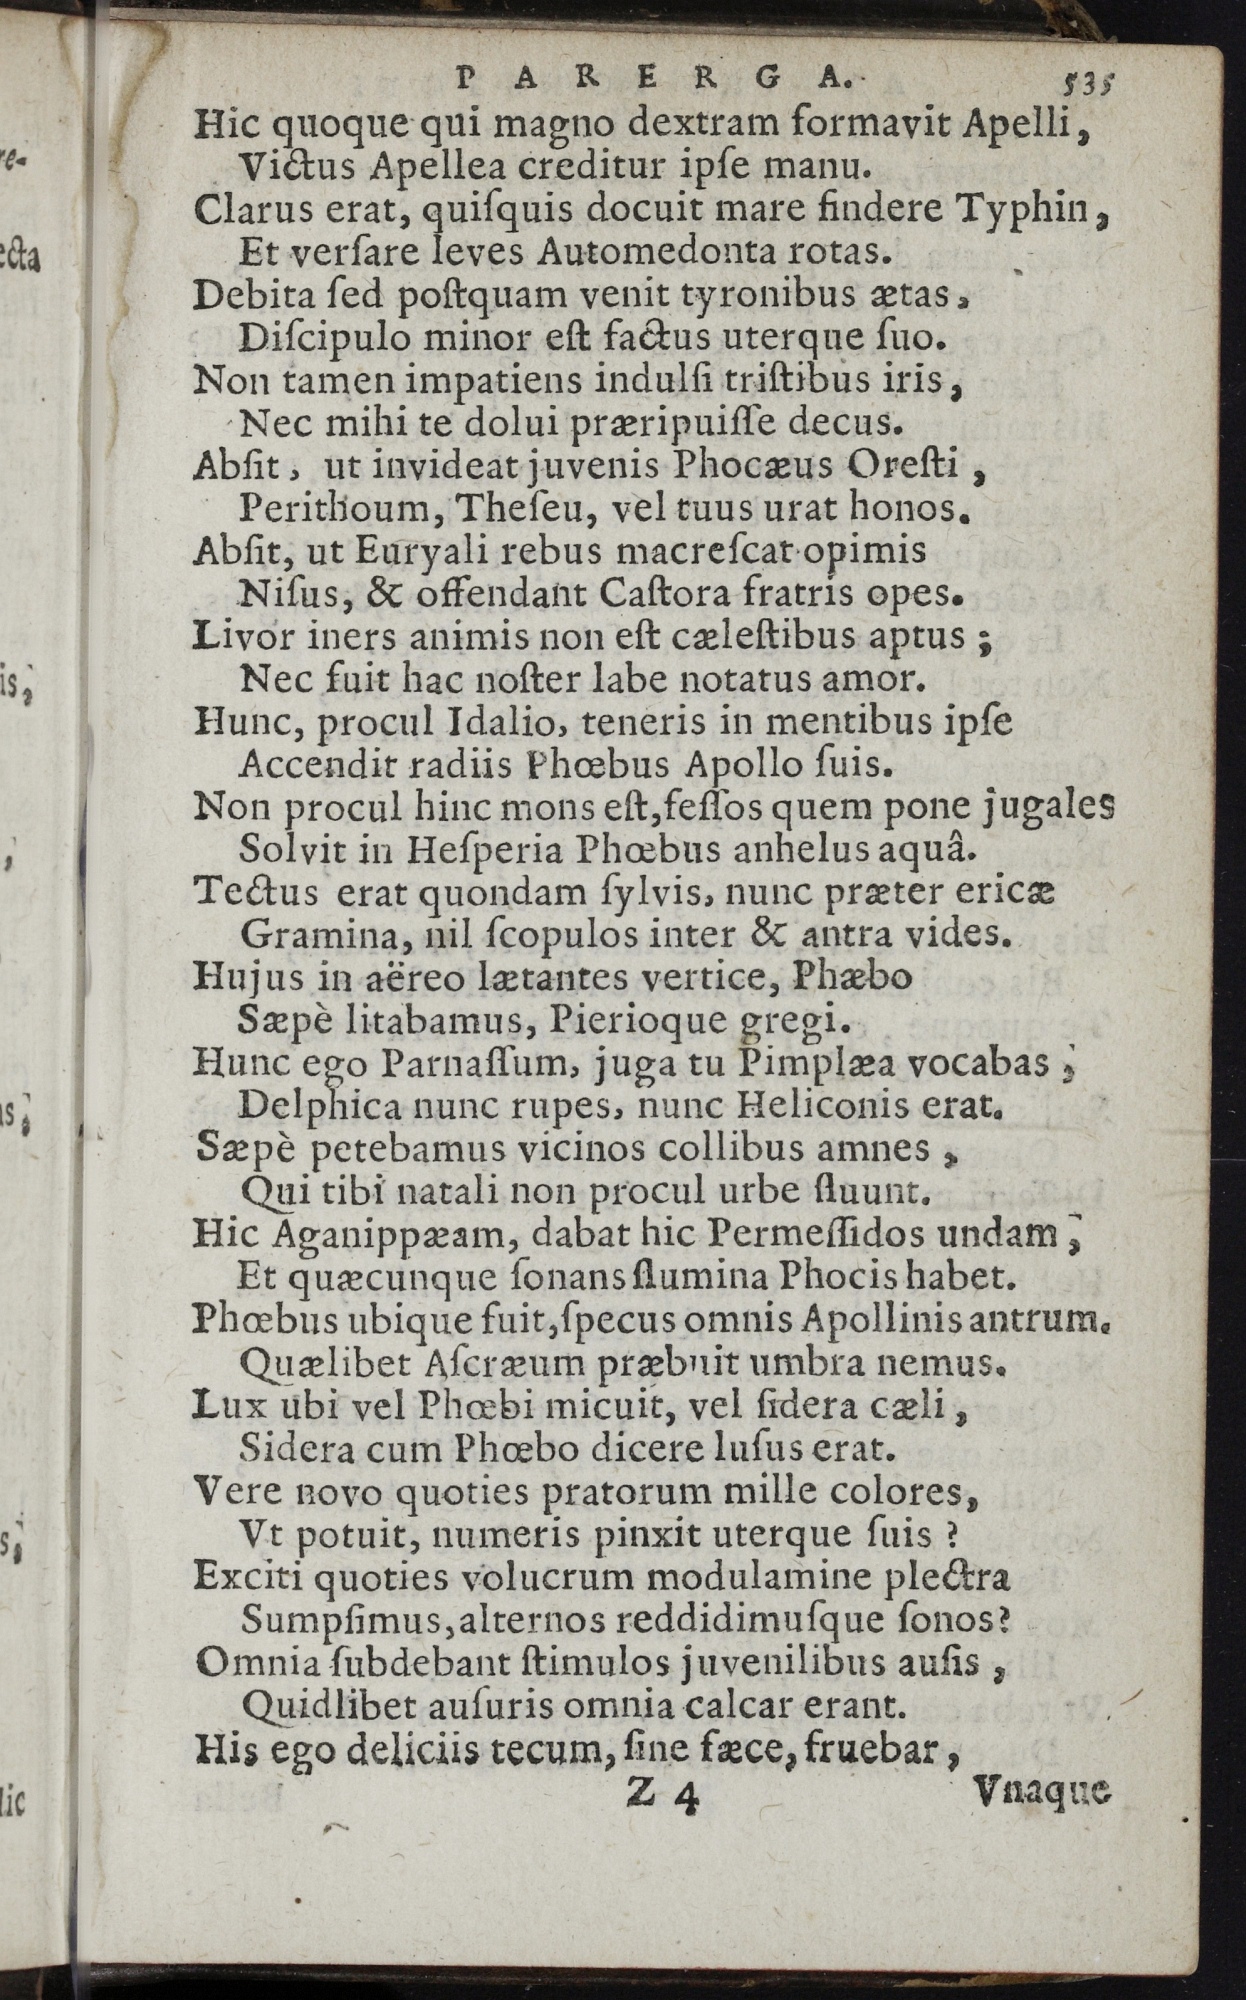 PARERGA. 535
Hic quoque qui magno dextram formavit Apelli,
Victus Apellea creditur ipſe manu.
Clarus erat, quiſquis docuit mare findere Typhin,
Et verſare leves Automedonta rotas.
Debita ſed poſtquam venit tyronibus ætas,
Diſcipulo minor eſt factus uterque ſuo.
Non tamen impatiens indulſi triſtibus iris,
Nec mihi te dolui præripuiſſe decus.
Abſit, ut invideat juvenis Phocæus Oreſti,
Perithoum, Theſeu, vel tuus urat honos.
Abſit, ut Euryali rebus macreſcat opimis
Niſus, & offendant Caſtora fratris opes.
Livor iners animis non eſt cæleſtibus aptus;
Nec fuit hac noſter labe notatus amor.
Hunc, procul Idalio, teneris in mentibus ipſe
Accendit radiis Phœbus Apollo ſuis.
Non procul hinc mons eſt, feſſos quem pone jugales
Solvit in Heſperia Phœbus anhelus aquâ.
Tectus erat quondam ſylvis, nunc præter ericæ
Gramina, nil ſcopulos inter & antra vides.
Hujus in aëreo lætantes vertice, Phæbo
Sæpè litabamus, Pierioque gregi.
Hunc ego Parnaſſum, juga tu Pimplæa vocabas;
Delphica nunc rupes, nunc Heliconis erat.
Sæpè petebamus vicinos collibus amnes,
Qui tibi natali non procul urbe fluunt.
Hic Aganippæam, dabat hic Permeſſidos undam;
Et quæcunque ſonans flumina Phocis habet.
Phœbus ubique fuit, ſpecus omnis Apollinis antrum.
Quælibet Aſcræum præbuit umbra nemus.
Lux ubi vel Phœbi micuit, vel ſidera cæli,
Sidera cum Phœbo dicere luſus erat.
Vere novo quoties pratorum mille colores,
Vt potuit, numeris pinxit uterque ſuis?
Exciti quoties volucrum modulamine plectra
Sumpſimus, alternos reddidimuſque ſonos?
Omnia ſubdebant ſtimulos juvenilibus auſis,
Quidlibet auſuris omnia calcar erant.
His ego deliciis tecum, ſine fæce, fruebar,
Z 4 Vnaque